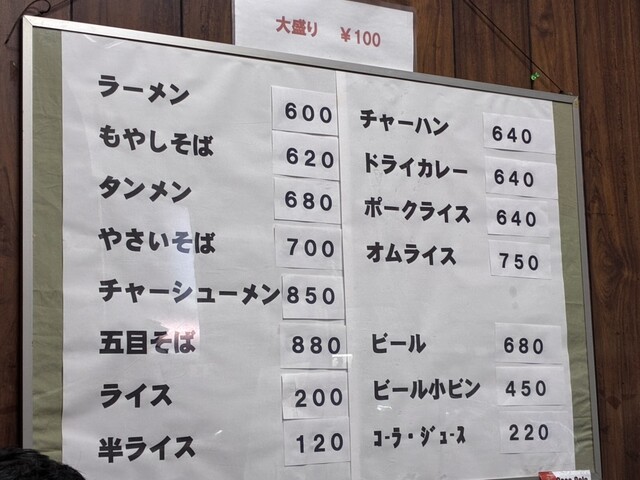 大盛り ￥100
ラーメン 600
もやしそば 620
タンメン 680
やさいそば 700
チャーシューメン 850
五目そば 880
ライス 200
半ライス 120
チャーハン 640
ドライカレー 640
ポークライス 640
オムライス 750
ビール 680
ビール小ビン 450
ｺｰﾗ・ｼﾞｭｰｽ 220